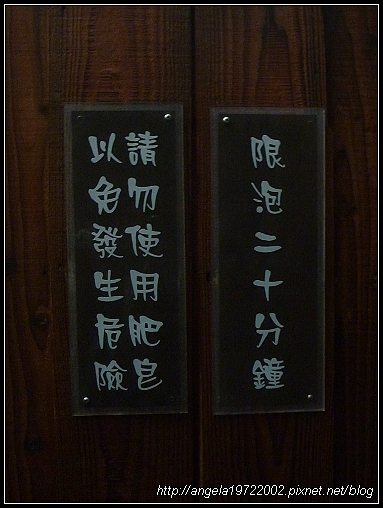 限泡二十分鐘
請勿使用肥皂
以免發生危險
http://angela19722002.pixnet.net/blog